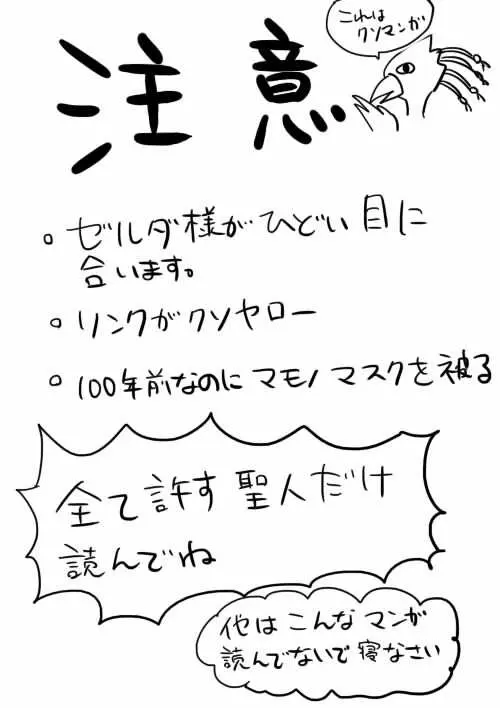 注意
これは
クソマンガ
。ゼルダ様がひどい目に
合います。
。リンクがクソヤロー
。100年前なのにマモノマスクを被る
全て許す聖人だけ
読んでね
他はこんなマンガ
読んでないで寝なさい